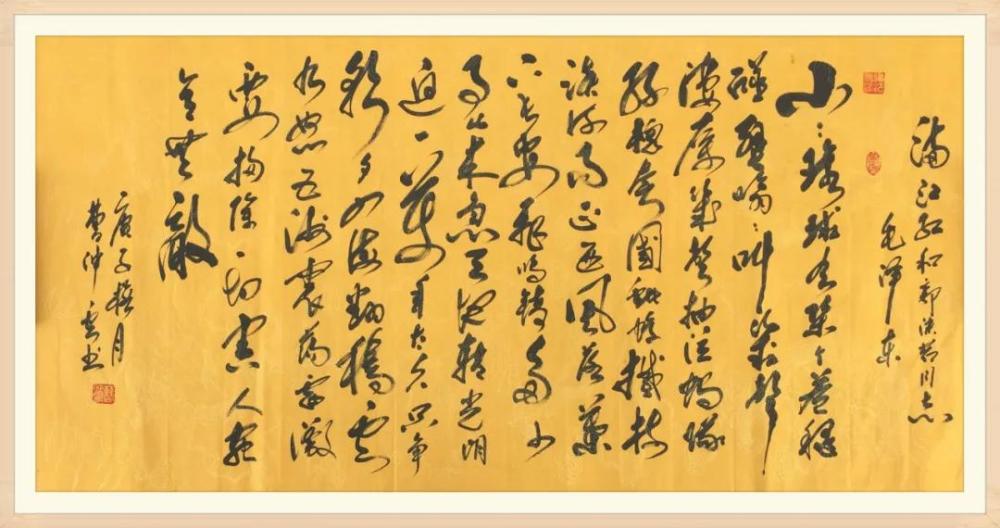 满江红和郭沫若同志
毛泽东
小小环球有几个苍蝇
碰壁嗡嗡叫几声
凄厉几声抽泣蚂蚁
缘槐夸大国蚍蜉撼树
谈何易正西风落叶
下长安飞鸣镝多少
事从来急天地转光阴
迫一万年太久只争
朝夕四海翻腾云
水怒五洲震荡风雷激
要扫除一切害人虫
全无敌
庚子梅月